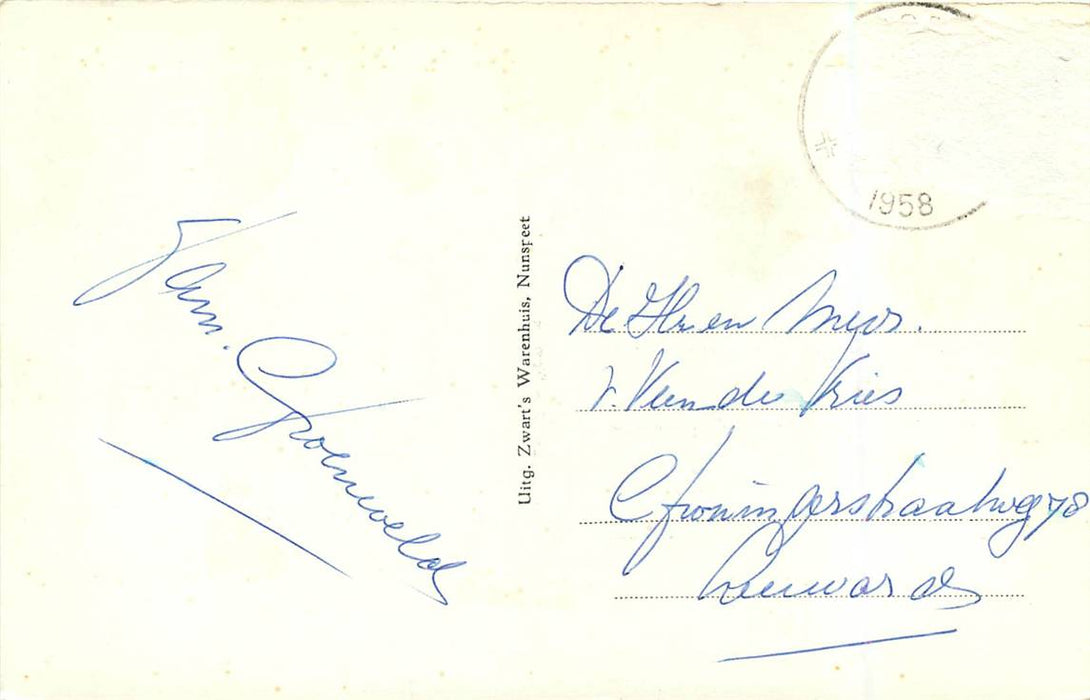 1958
Fam. Groeneveld
Uitg. Zwart's Warenhuis, Nunspeet
De Hr en Mevr.
v. Veen de Vries
Groningerstraatweg 78
Leeuwarden